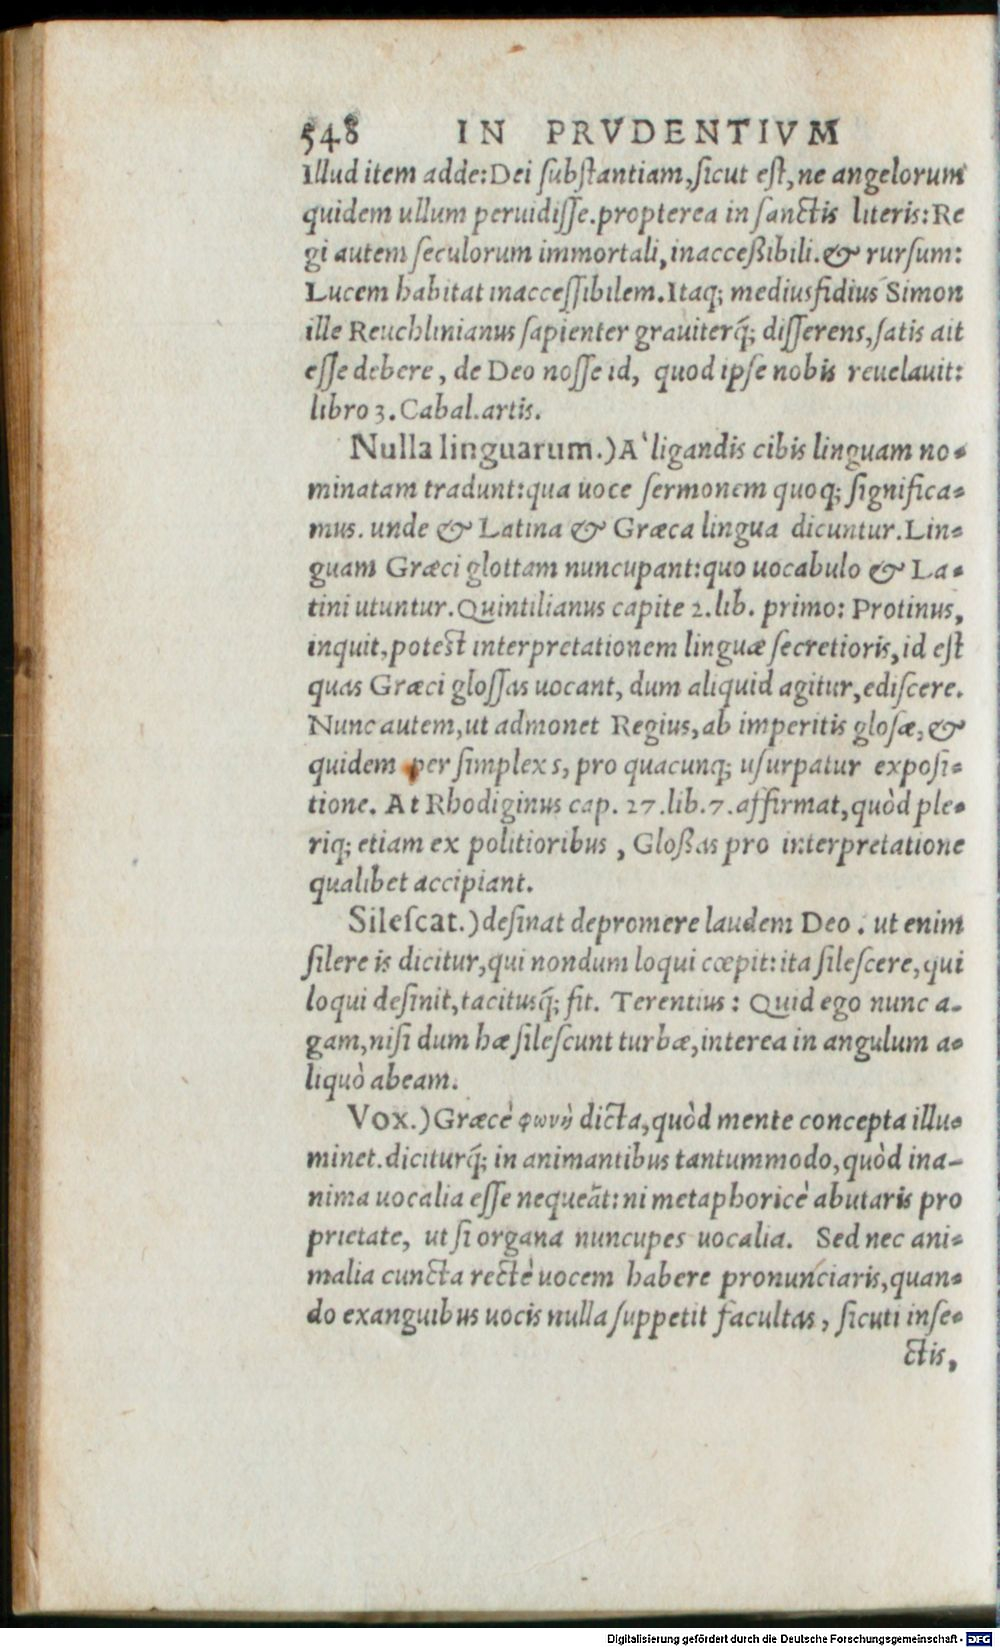 548 IN PRVDENTIVM
Illud item adde: Dei ſubſtantiam, ſicut eſt, ne angelorum
quidem ullum peruidiſſe. propterea in ſanctis literis: Re
gi autem ſeculorum immortali, inacceßibili. & rurſum:
Lucem habitat inacceſſibilem. Itaq; mediusfidius Simon
ille Reuchlinianus ſapienter grauiterq́; diſſerens, ſatis ait
eſſe debere, de Deo noſſe id, quod ipſe nobis reuelauit:
libro 3. Cabal. artis.
Nulla linguarum.) A' ligandis cibis linguam no-
minatam tradunt: qua uoce ſermonem quoq; ſignifica-
mus. unde & Latina & Græca lingua dicuntur. Lin-
guam Græci glottam nuncupant: quo uocabulo & La-
tini utuntur. Quintilianus capite 2. lib. primo: Protinus,
inquit, poteſt interpretationem linguæ ſecretioris, id eſt
quas Græci gloſſas uocant, dum aliquid agitur, ediſcere.
Nunc autem, ut admonet Regius, ab imperitis gloſæ, &
quidem per ſimplex s, pro quacunq; uſurpatur expoſi-
tione. At Rhodiginus cap. 27. lib. 7. affirmat, quòd ple-
riq; etiam ex politioribus, Gloßas pro interpretatione
qualibet accipiant.
Sileſcat.) deſinat depromere laudem Deo. ut enim
ſilere is dicitur, qui nondum loqui cœpit: ita ſileſcere, qui
loqui deſinit, tacitusq́; fit. Terentius: Quid ego nunc a-
gam, niſi dum hæ ſileſcunt turbæ, interea in angulum a-
liquò abeam.
Vox.) Græcè φωνὴ dicta, quòd mente concepta illu-
minet. diciturq́; in animantibus tantummodo, quòd ina-
nima uocalia eſſe nequeãt: ni metaphoricè abutaris pro
prietate, ut ſi organa nuncupes uocalia. Sed nec ani-
malia cuncta rectè uocem habere pronunciaris, quan-
do exanguibus uocis nulla ſuppetit facultas, ſicuti inſe-
ctis,
Digitalisierung gefördert durch die Deutsche Forschungsgemeinschaft - DFG